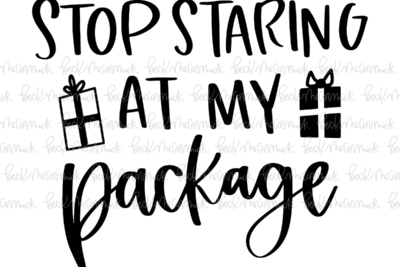 STOP STARING
AT MY
package